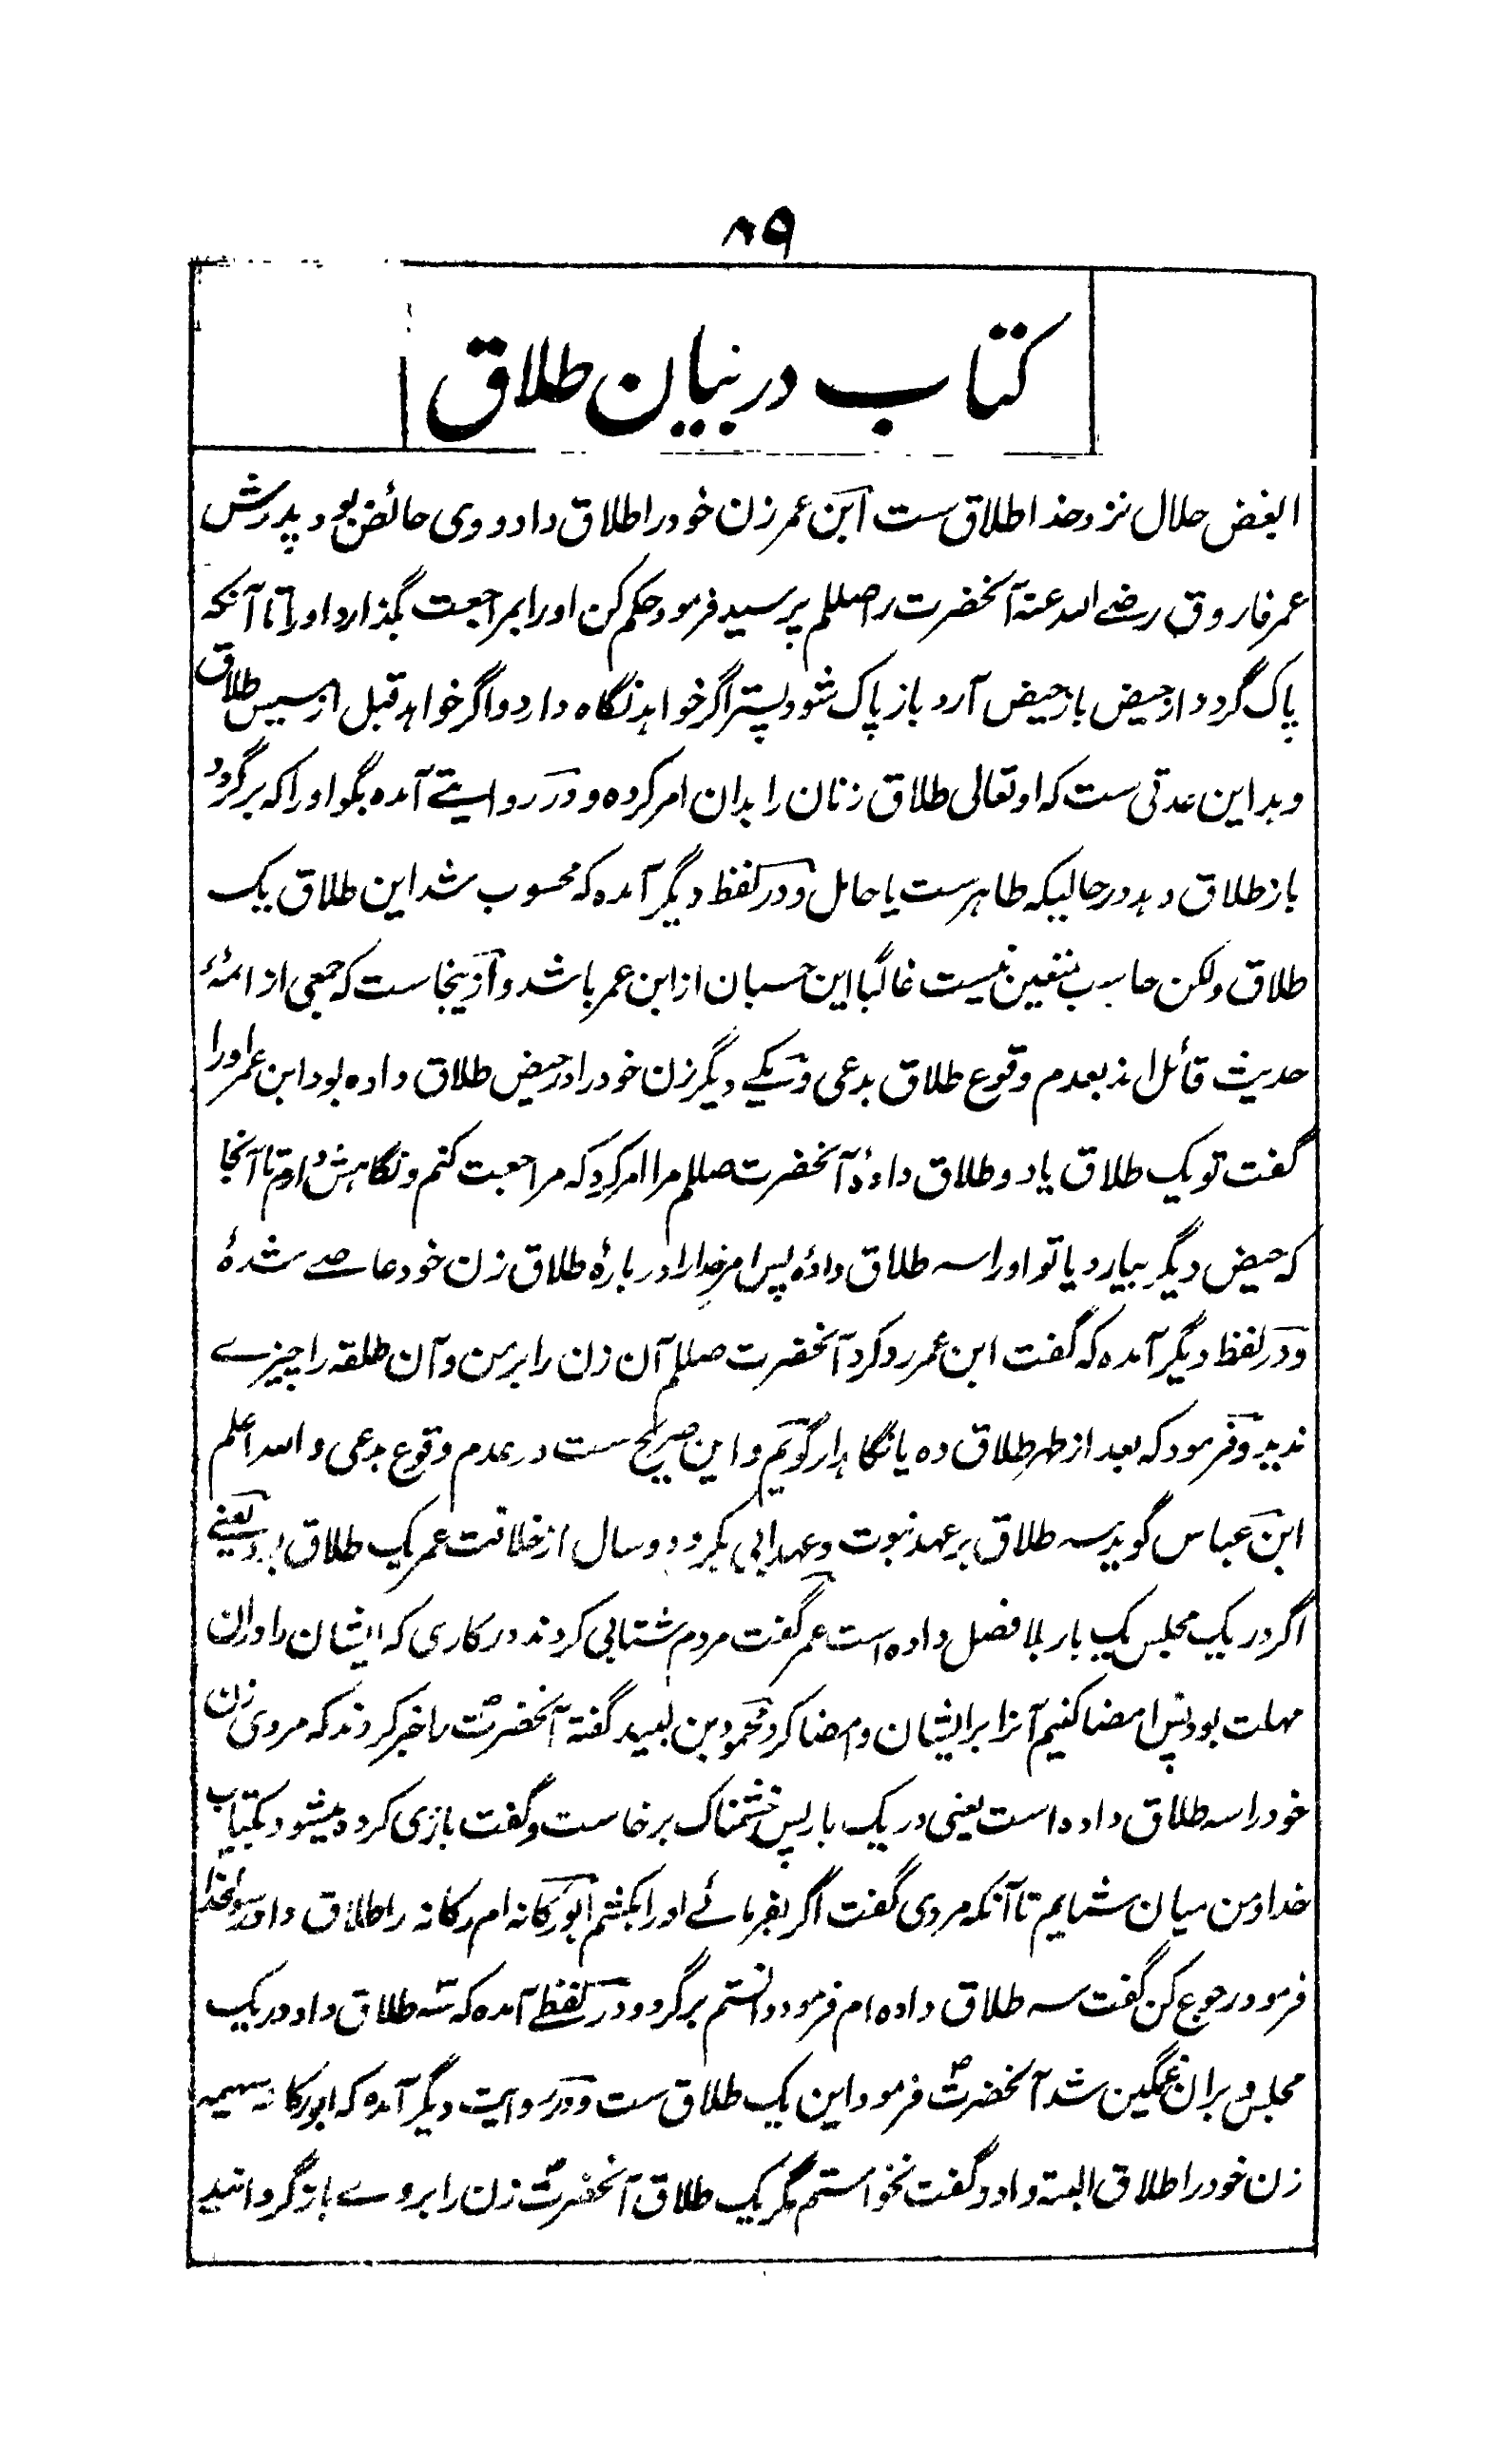 ۸۹
کتاب در بیان طلاق
ابغض حلال نزد خدا طلاق ست ابن عمر زن خود را طلاق داد و وی حائض بود پدرش
عمر فاروق رضے الله عنه آنحضرت را صللم پرسید فرمود حکم کن او را بمراجعت بگذارد او را تا آنکه
پاک گردد از حیض باز حیض آرد باز پاک شود پستر اگر خواهد نگاه دارد و اگر خواهد قبل از مسیس طلاق
دهد این عدتی ست که او تعالی طلاق زنان را بدان امر کرده و در روایتے آمده بگو او را که برگردد
باز طلاق دهد در حالیکه طاهر ست یا حامل و در لفظ دیگر آمده که محسوب شد این طلاق یک
طلاق ولکن حاسب متعین نیست غالبا این حسبان از ابن عمر باشد و ازینجاست که جمعی از ائمهٔ
حدیث قائل اند بعدم وقوع طلاق بدعی و یکے دیگر زن خود را در حیض طلاق داده بود ابن عمر او را
گفت تو یک طلاق یا دو طلاق دادهٔ آنحضرت صللم مرا امر کرد که مراجعت کنم و نگاهش دارم تا آنجا
که حیض دیگر بیارد یا تو او را سه طلاق دادهٔ پس امر خدا را در بارهٔ طلاق زن خود عاصے شدهٔ
و در لفظ دیگر آمده که گفت ابن عمر رد کرد آنحضرت صللم آن زن را بر من و آن طلقه را چیزے
ندید و فرمود که بعد از طهر طلاق ده یا نگاهدار گویم و این صریح ست در عدم وقوع بدعی و الله اعلم
ابن عباس گوید سه طلاق بر عهد نبوت و عهد ابی بکر و دو سال از خلافت عمر یک طلاق بود یعنے
اگر در یک مجلس یک بار بلا فصل داده است عمر گفت مردم شتابی کردند در کاری که ایشان را دران
مهلت بود پس امضا کنیم آنرا بر ایشان و امضا کرد محمود بن لبید گفته آنحضرت ص را خبر کردند که مردی زن
خود را سه طلاق داده است یعنی در یک بار پس خشمناک برخاست و گفت بازی کرده میشود بکتاب
خدا و من میان شمایم تا آنکه مردی گفت اگر بفرمائے او را بکشم ابو رکانه ام رکانه را طلاق داد رسول خدا
فرمود رجوع کن گفت سه طلاق داده ام فرمود دانستم برگرد و در لفظے آمده که سه طلاق داد در یک
مجلس و بران غمگین شد آنحضرت ص فرمود این یک طلاق ست و در روایت دیگر آمده که ابو رکانه سهیمه
زن خود را طلاق البته داد و گفت نخواستم مگر یک طلاق آنحضرت ص زن را بر وے باز گردانید